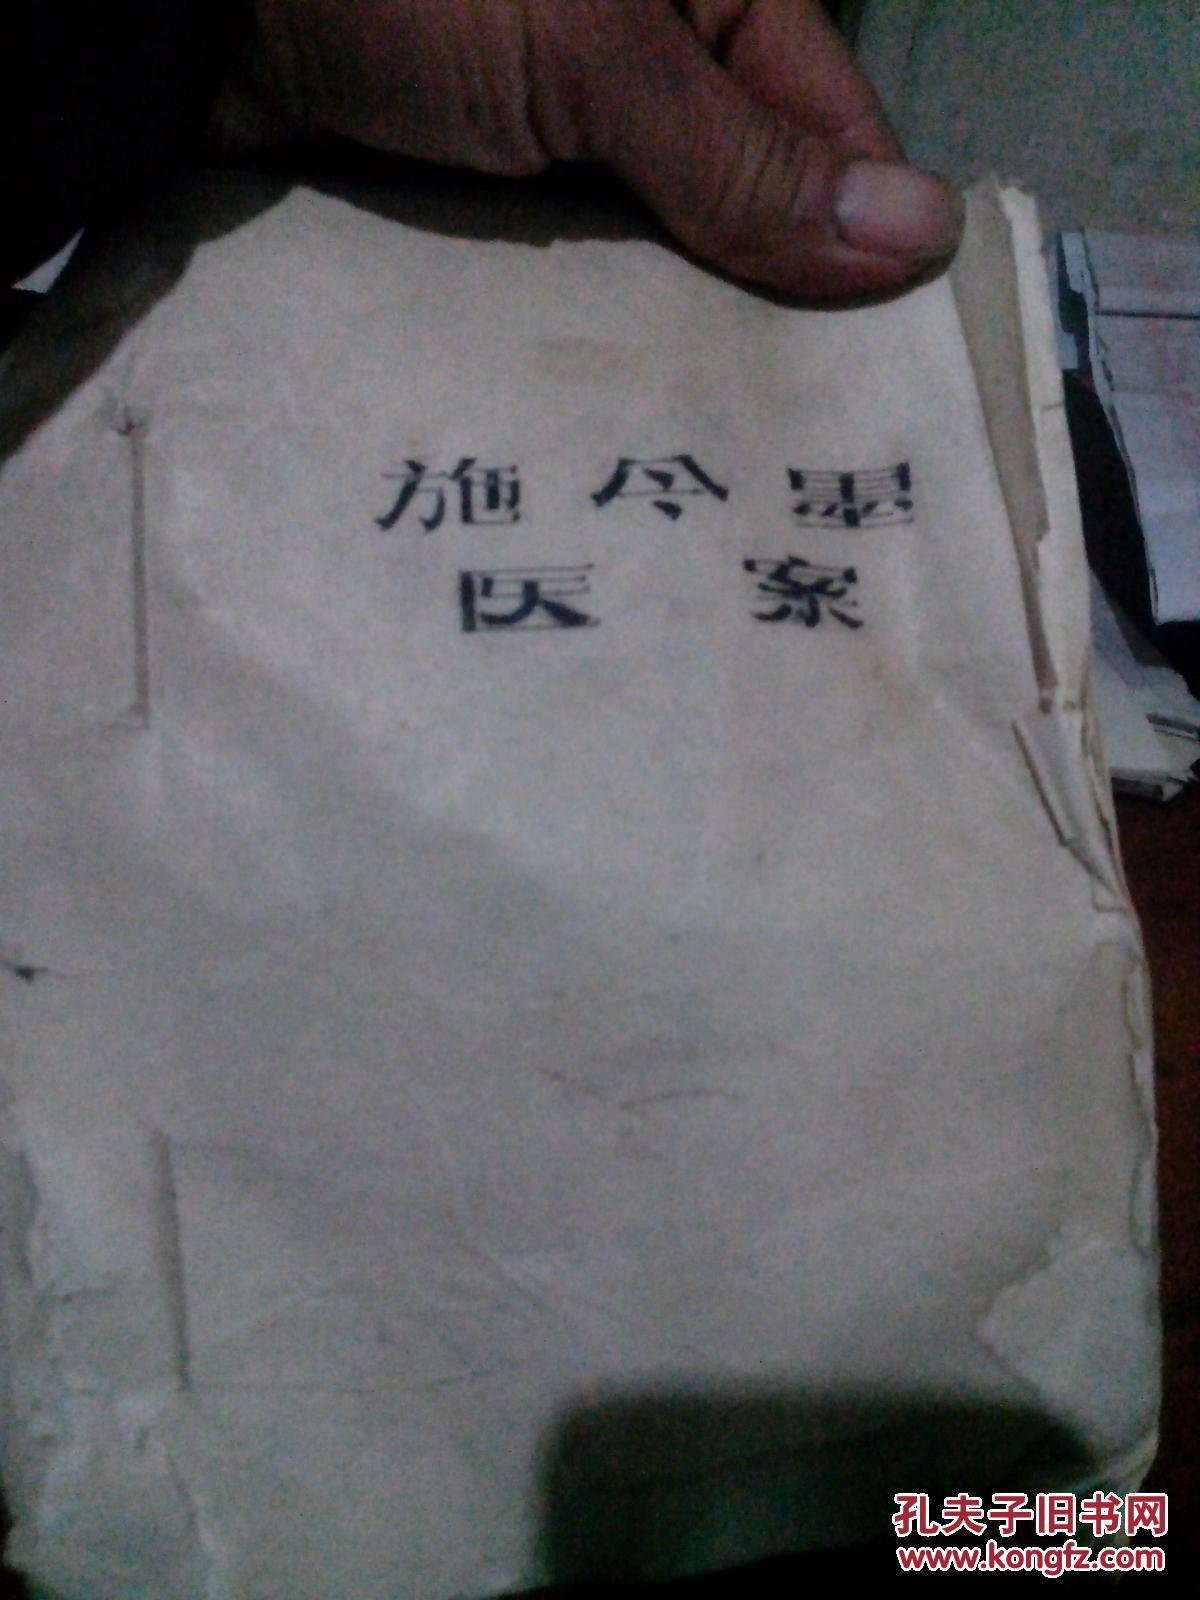 施今墨
医案
孔夫子旧书网
www.kongfz.com